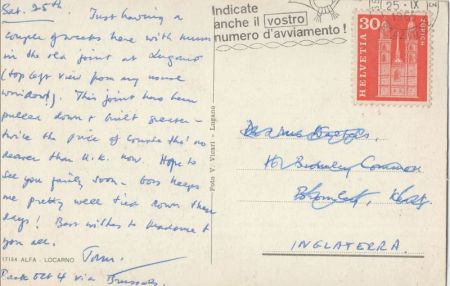 Sat. 25th
Just having a
couple of weeks here with Mum
in the old joint at Lugano
(top left view from my usual
window!). This joint has been
pulled down & built greater –
twice the price of course tho' no
dearer than U.K. now. Hope to
see you fairly soon – boss keeps
me pretty well tied down these
days! Best wishes to Madame &
you all.
Tom.
Indicate
anche il vostro
numero d'avviamento!
25.-IX
30
HELVETIA
ZÜRICH
Foto V. Vicari - Lugano
Common
INGLATERRA
17134 ALFA - LOCARNO
Back Oct 4 via Brussels.